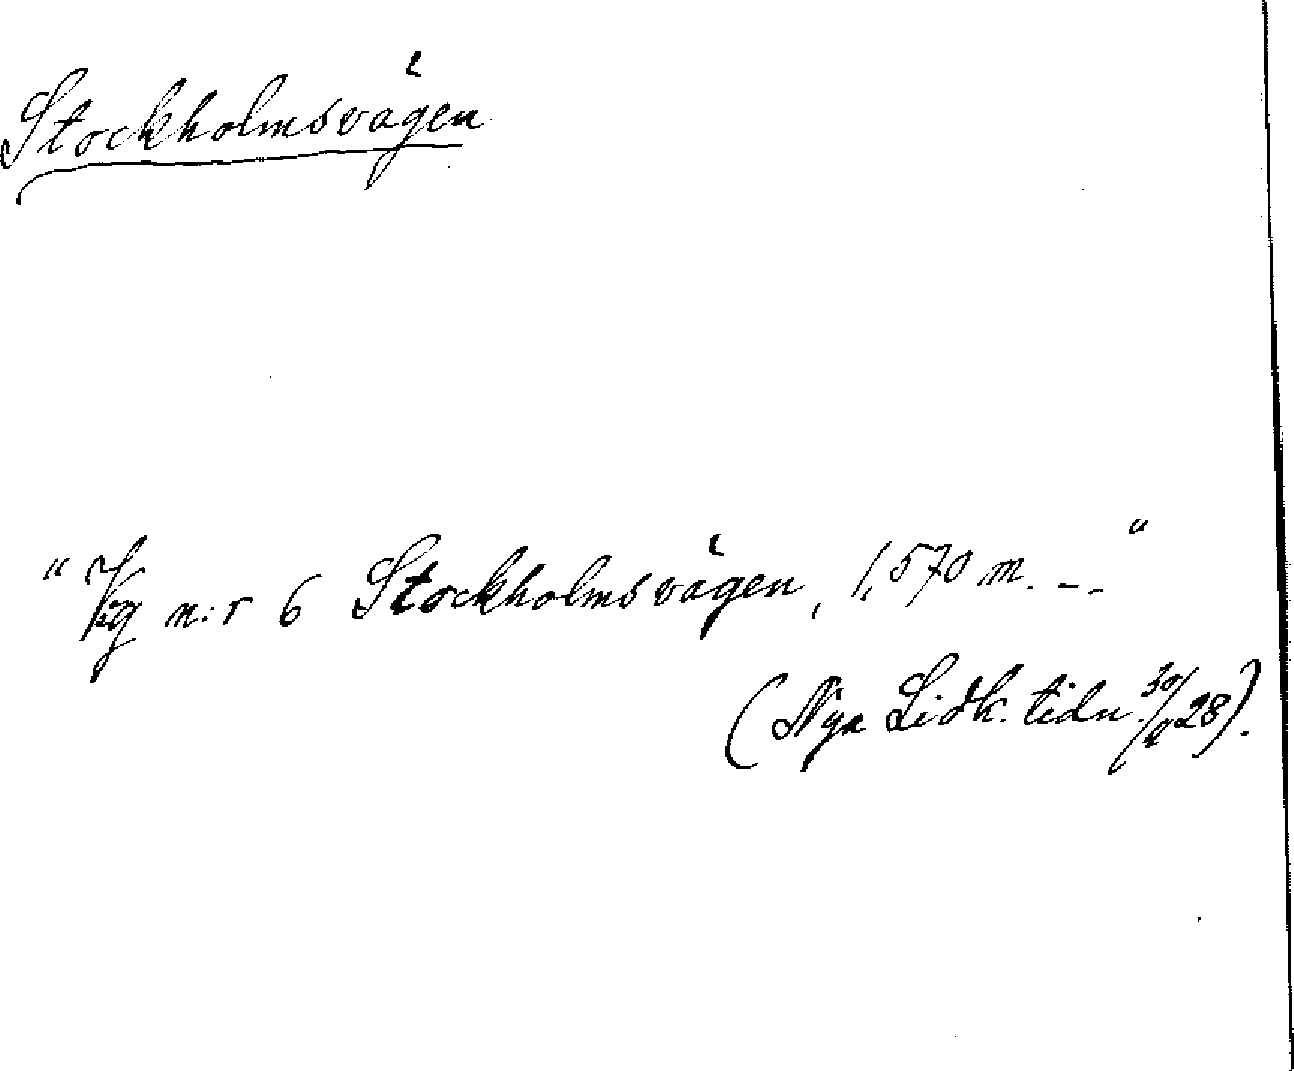 Stockholmsvägen
"Väg n:r 6 Stockholmsvägen, 1,570 m. -.-"
(Nya Lidk. tidn. 28).